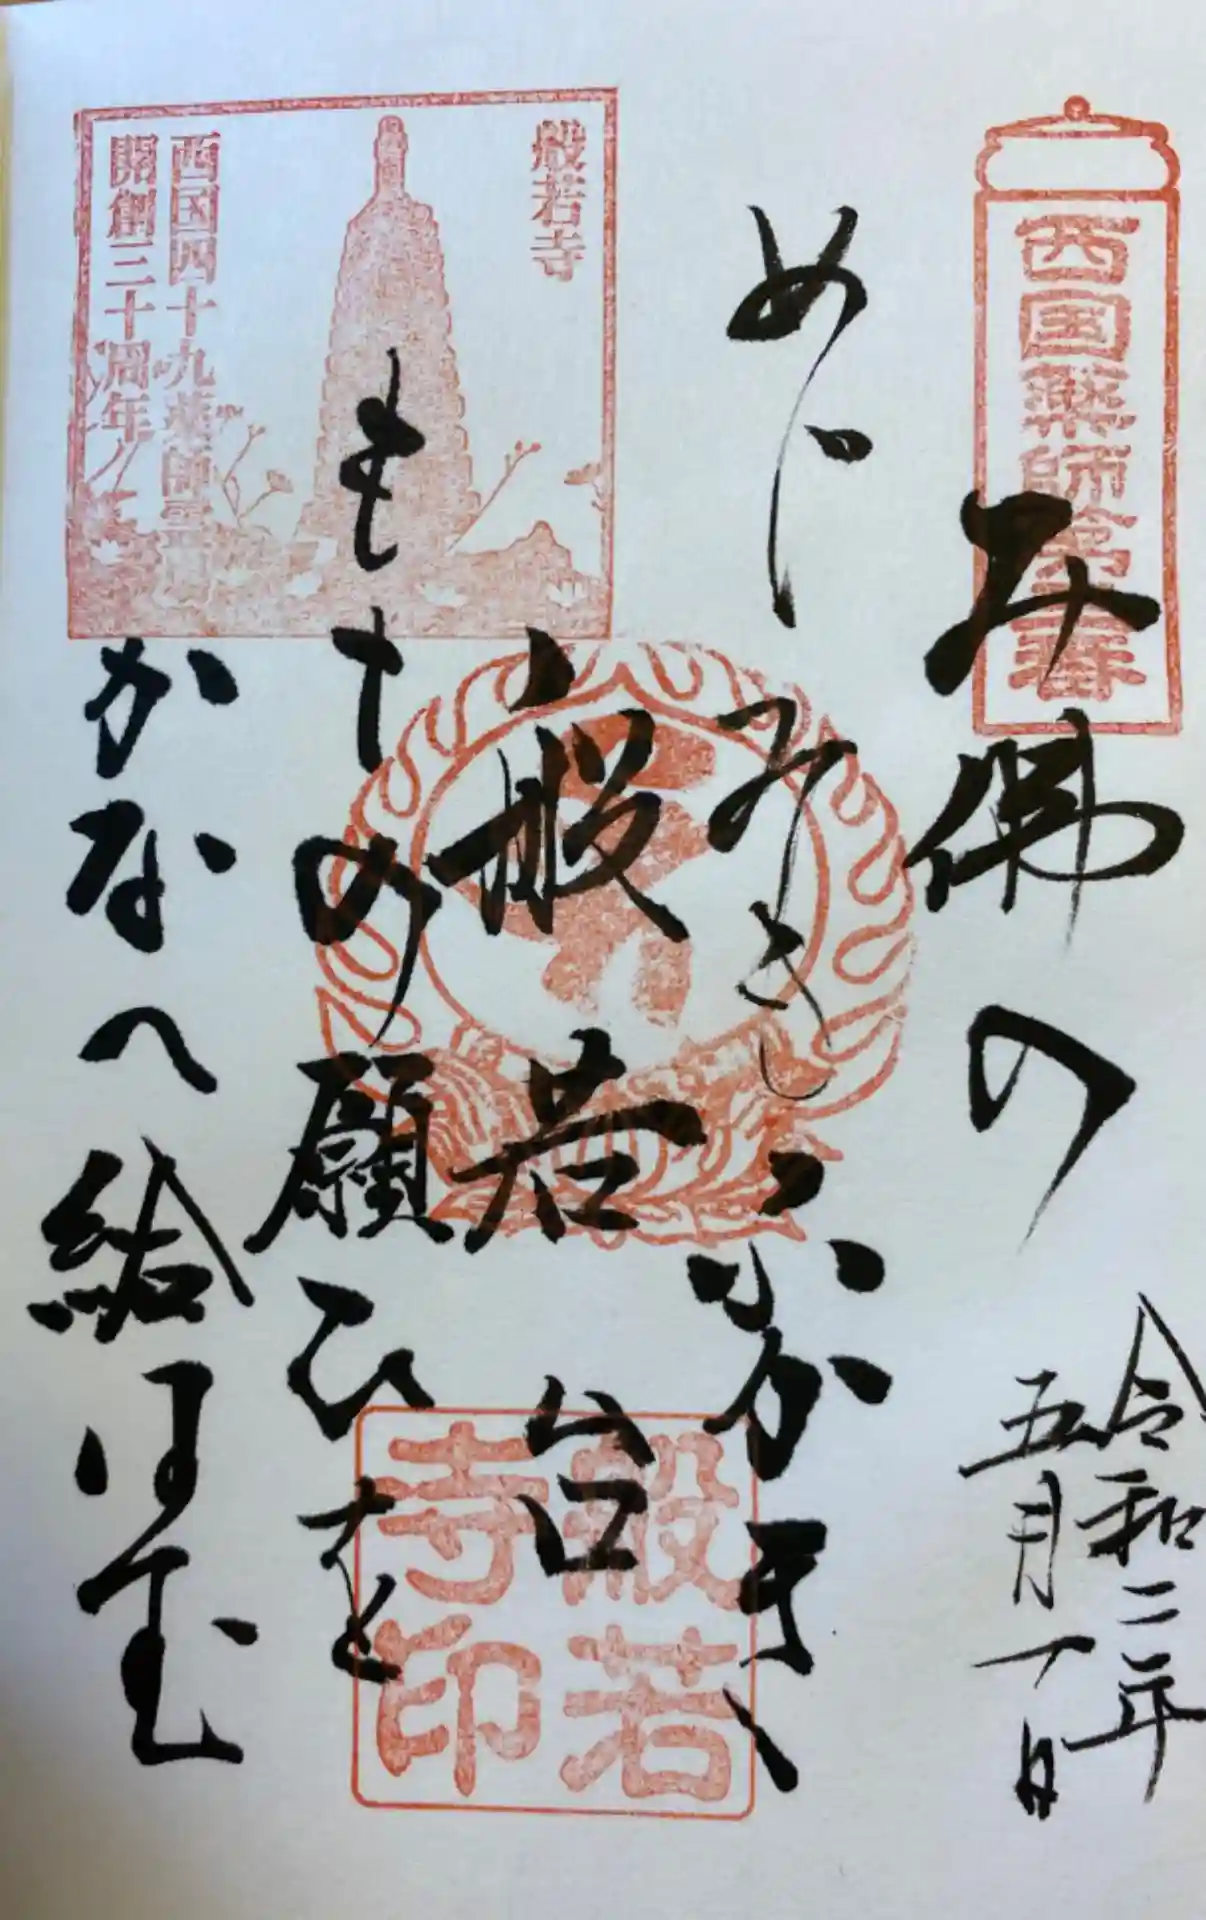 西国薬師第三番
み佛の
令和二年
五月一日
めぐ ふかき
般若台
の願ひを
かなへ給
般若寺
西国四十九薬師霊場
開創三十周年
般若
寺印